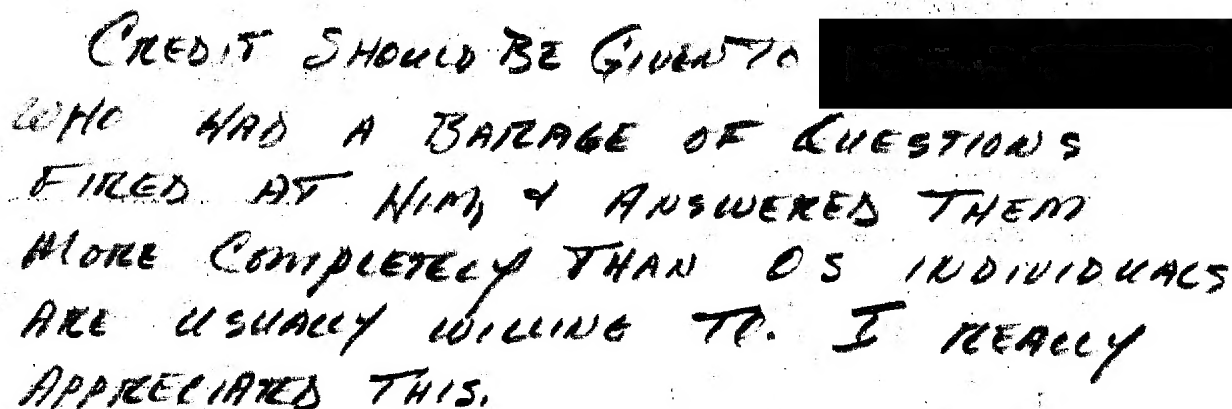 CREDIT SHOULD BE GIVEN TO
WHO HAD A BARAGE OF QUESTIONS
FIRED AT HIM, & ANSWERED THEM
MORE COMPLETELY THAN OS INDIVIDUALS
ARE USUALLY WILLING TO. I REALLY
APPRECIATED THIS.